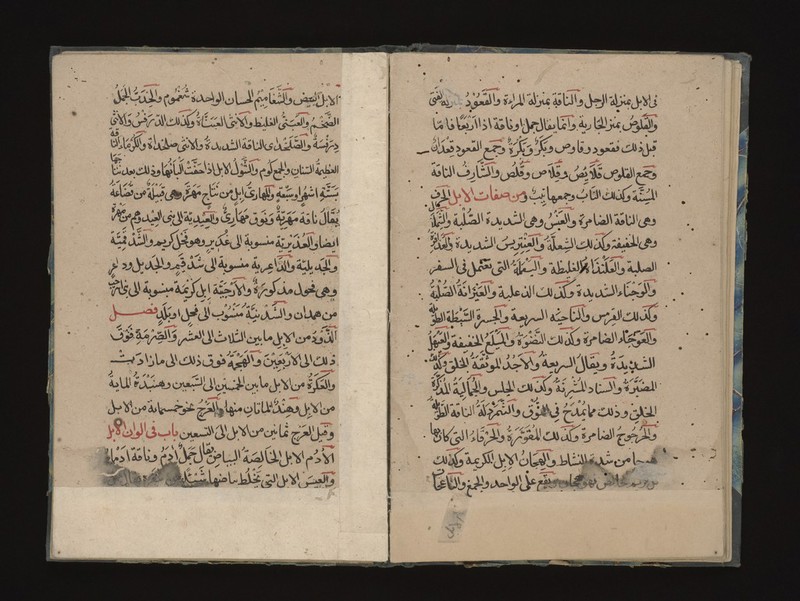 فى الابل بمنزلة الرجل والناقة بمنزلة المراة والقَعُود بمنزلة الفتى
والقلوص بمنزلة الجارية وانما يقال جمل اوناقة اذا اربعا فاما
قبل ذلك فقعود وقلوص وبَكْرٌ وبَكْرَةٌ وجمع القعود قِعدان
وجمع القلوص قَلَايصٌ وقِلَاص وقُلُص والشَّارِفُ الناقة
المُسِنَّة وكذلك النَّابُ وجمعها نِيبٌ ومن صفات الابل الحرف
وهى الناقة الضامرة والعَنْسُ وهى الشديدة الصُّلْبة والشملال
وهى الخفيفة وكذلك الشِملَة والعنتريس الشديدة
الصلبة والعَلَنْدَاةُ الغليظة واليَعْمَلَة التى تعتمل فى السفر
والوَجْنَاء الشديدة وكذلك الذعلبة والعَيْرَانَةُ الصُّلْبَة
وكذلك العِرْمِس والناجية السريعة والجَسْرة السَّبْطَة
والعَوْجَاء الضامرة وكذلك النِّضْوَة والمَيْلَع الخفيفة
الشديدة ويقال السريعة والاُجُدُ المُوثَّقة الخلق وكذلك
المضبّرة والسناد المشرفة وكذلك الجَلْس والجُمَالِيَّة
الخلق وذلك مما يُمْدَحُ فى النُّوق والشَّمَرْدَلَة الناقة الطويلة
والحُرْجوج الضامرة وكذلك المُقْوَرَّة والخَرْقَاءُ التى كان بها
هوجا من شدة النشاط والهِجَان الابل الكريمة وكذلك
يقع على الواحد والجمع
الابل البيض والشَّغَامِيمُ الحسان الواحدة شُغْمُوم والخِدَبُّ الجملُ
الضَّخْم والعَبَنّى الغليظ والانثى العَبَنَّاةُ وكذلك الدِّرَفْسُ والانثى
دِرَفْسَةٌ والصَّلَخْدَى الناقة الشديدة والانثى صلخداة والكَوْمَاء الناقة
العظيمة السنام والجمع كُوم والشَّوْل الابل اذا خَفَّتْ اَلْبَانُهَا وذلك بعد نتاجها
سَبْعَةِ اشهر وسَبْعَةٍ والمَهَارِىّ ابل من نتاج مَهْرَةَ وهى قبيلة من قضاعة
يُقالُ ناقة مَهْرِيَّة ونوق مَهَارِىٌّ والعِيديَّة الى بنى العِيد وهم من مهرة
ايضا والغُرَيْرِيَّة منسوبة الى غُرَير وهو فحل كريم والشَّدْقَمِيَّة
والجَدِيليَّة والدَّاعِرِيَّة منسوبة الى شَدْقَم والجديل وداعر
وهى فحول مذكورة والاَرْحَبِيَّة ابل كريمة منسوبة الى بنى ارحب
من همدان والشَّدَنِيَّة منسوب الى فحل او بلد فصل
الذَّوْدُ من الابل ما بين الثلاث الى العَشْر والصِّرْمَة فَوْقَ
ذلك الى الاربعين والهَجْمَة فوق ذلك الى ما زادت
والعَكَرَةُ من الابل ما بين الخمسين الى السَّبعين وهُنَيْدَةُ الماية
من الابل وهِنْدٌ مائتان منها والعَرْج نحو خمسماية من الابل
وقيل العرج ثمانين من الابل الى التسعين باب فى الوان الابل
الاُدْم الابل الخالصة البياض يقال جَمَل آدَمُ وناقة اَدْمَاء
والعِيسُ الابل التى يَخْلُطُ بياضها شىء